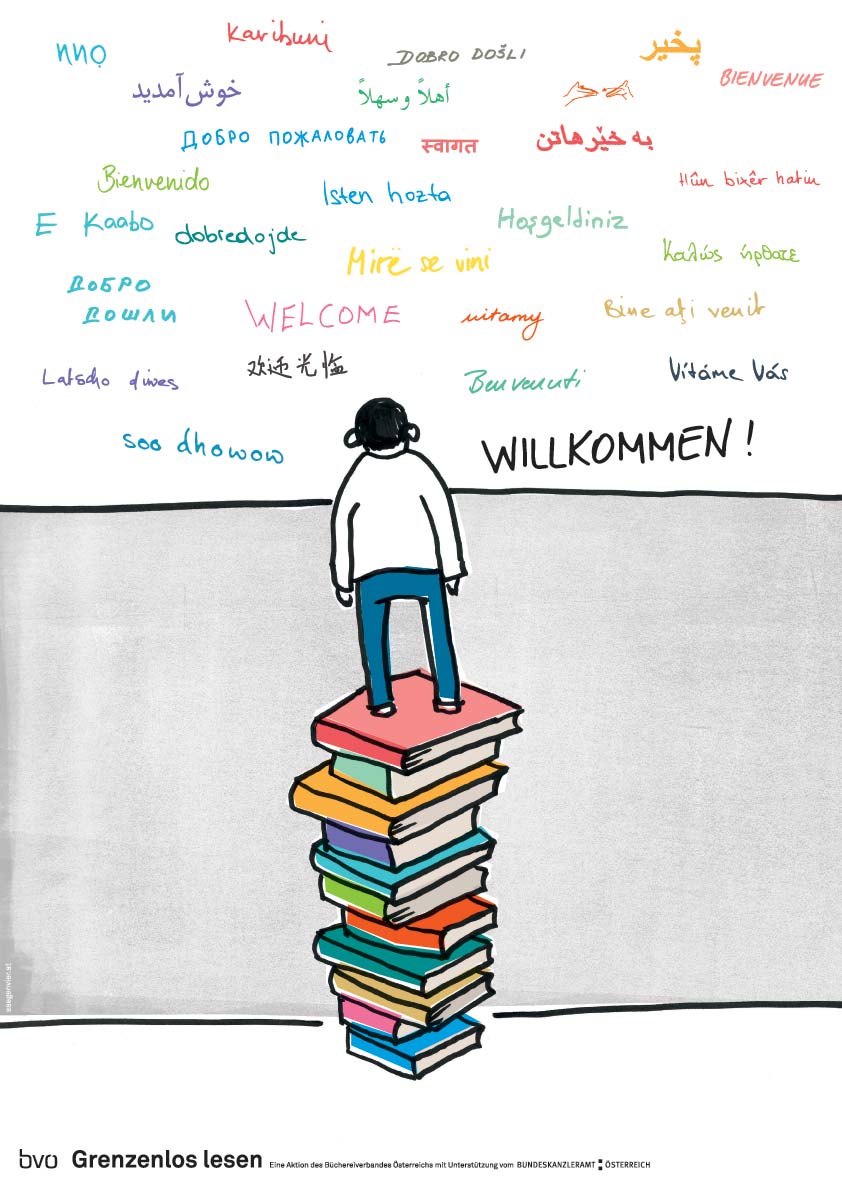 nnọ
Karibuni
DOBRO DOŠLI
پخیر
BIENVENUE
خوش آمدید
أهلاً وسهلاً
ДОБРО ПОЖАЛОВАТЬ
स्वागत
به خێرهاتن
Bienvenido
Isten hozta
Hûn bixêr hatin
E Kaabo
dobredojde
Hoşgeldiniz
Mirë se vini
Καλώς ήρθατε
ДОБРО
ДОШЛИ
WELCOME
witamy
Bine aţi venit
Latscho dives
欢迎光临
Benvenuti
Vítáme Vás
soo dhowow
WILLKOMMEN!
saegenvier.at
bvo Grenzenlos lesen Eine Aktion des Büchereiverbandes Österreichs mit Unterstützung vom BUNDESKANZLERAMT ÖSTERREICH